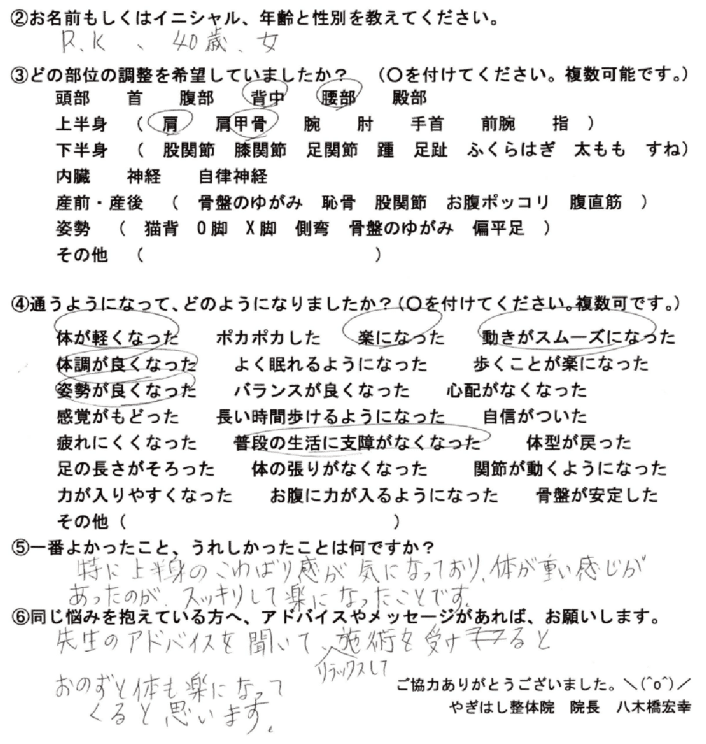 ②お名前もしくはイニシャル、年齢と性別を教えてください。
R.K 、 40歳、女
③どの部位の調整を希望していましたか？ （○を付けてください。複数可能です。）
頭部 首 腹部 背中 腰部 殿部
上半身 （ 肩 肩甲骨 腕 肘 手首 前腕 指 ）
下半身 （ 股関節 膝関節 足関節 踵 足趾 ふくらはぎ 太もも すね）
内臓 神経 自律神経
産前・産後 （ 骨盤のゆがみ 恥骨 股関節 お腹ポッコリ 腹直筋 ）
姿勢 （ 猫背 O脚 X脚 側弯 骨盤のゆがみ 偏平足 ）
その他 （ ）
④通うようになって、どのようになりましたか？（○を付けてください。複数可です。）
体が軽くなった ポカポカした 楽になった 動きがスムーズになった
体調が良くなった よく眠れるようになった 歩くことが楽になった
姿勢が良くなった バランスが良くなった 心配がなくなった
感覚がもどった 長い時間歩けるようになった 自信がついた
疲れにくくなった 普段の生活に支障がなくなった 体型が戻った
足の長さがそろった 体の張りがなくなった 関節が動くようになった
力が入りやすくなった お腹に力が入るようになった 骨盤が安定した
その他（ ）
⑤一番よかったこと、うれしかったことは何ですか？
特に上半身のこわばり感が気になっており、体が重い感じが
あったのが、スッキリして楽になったことです。
⑥同じ悩みを抱えている方へ、アドバイスやメッセージがあれば、お願いします。
先生のアドバイスを聞いて、施術を受けると
リラックスして
おのずと体も楽になって
くると思います。
ご協力ありがとうございました。＼(^o^)／
やぎはし整体院 院長 八木橋宏幸